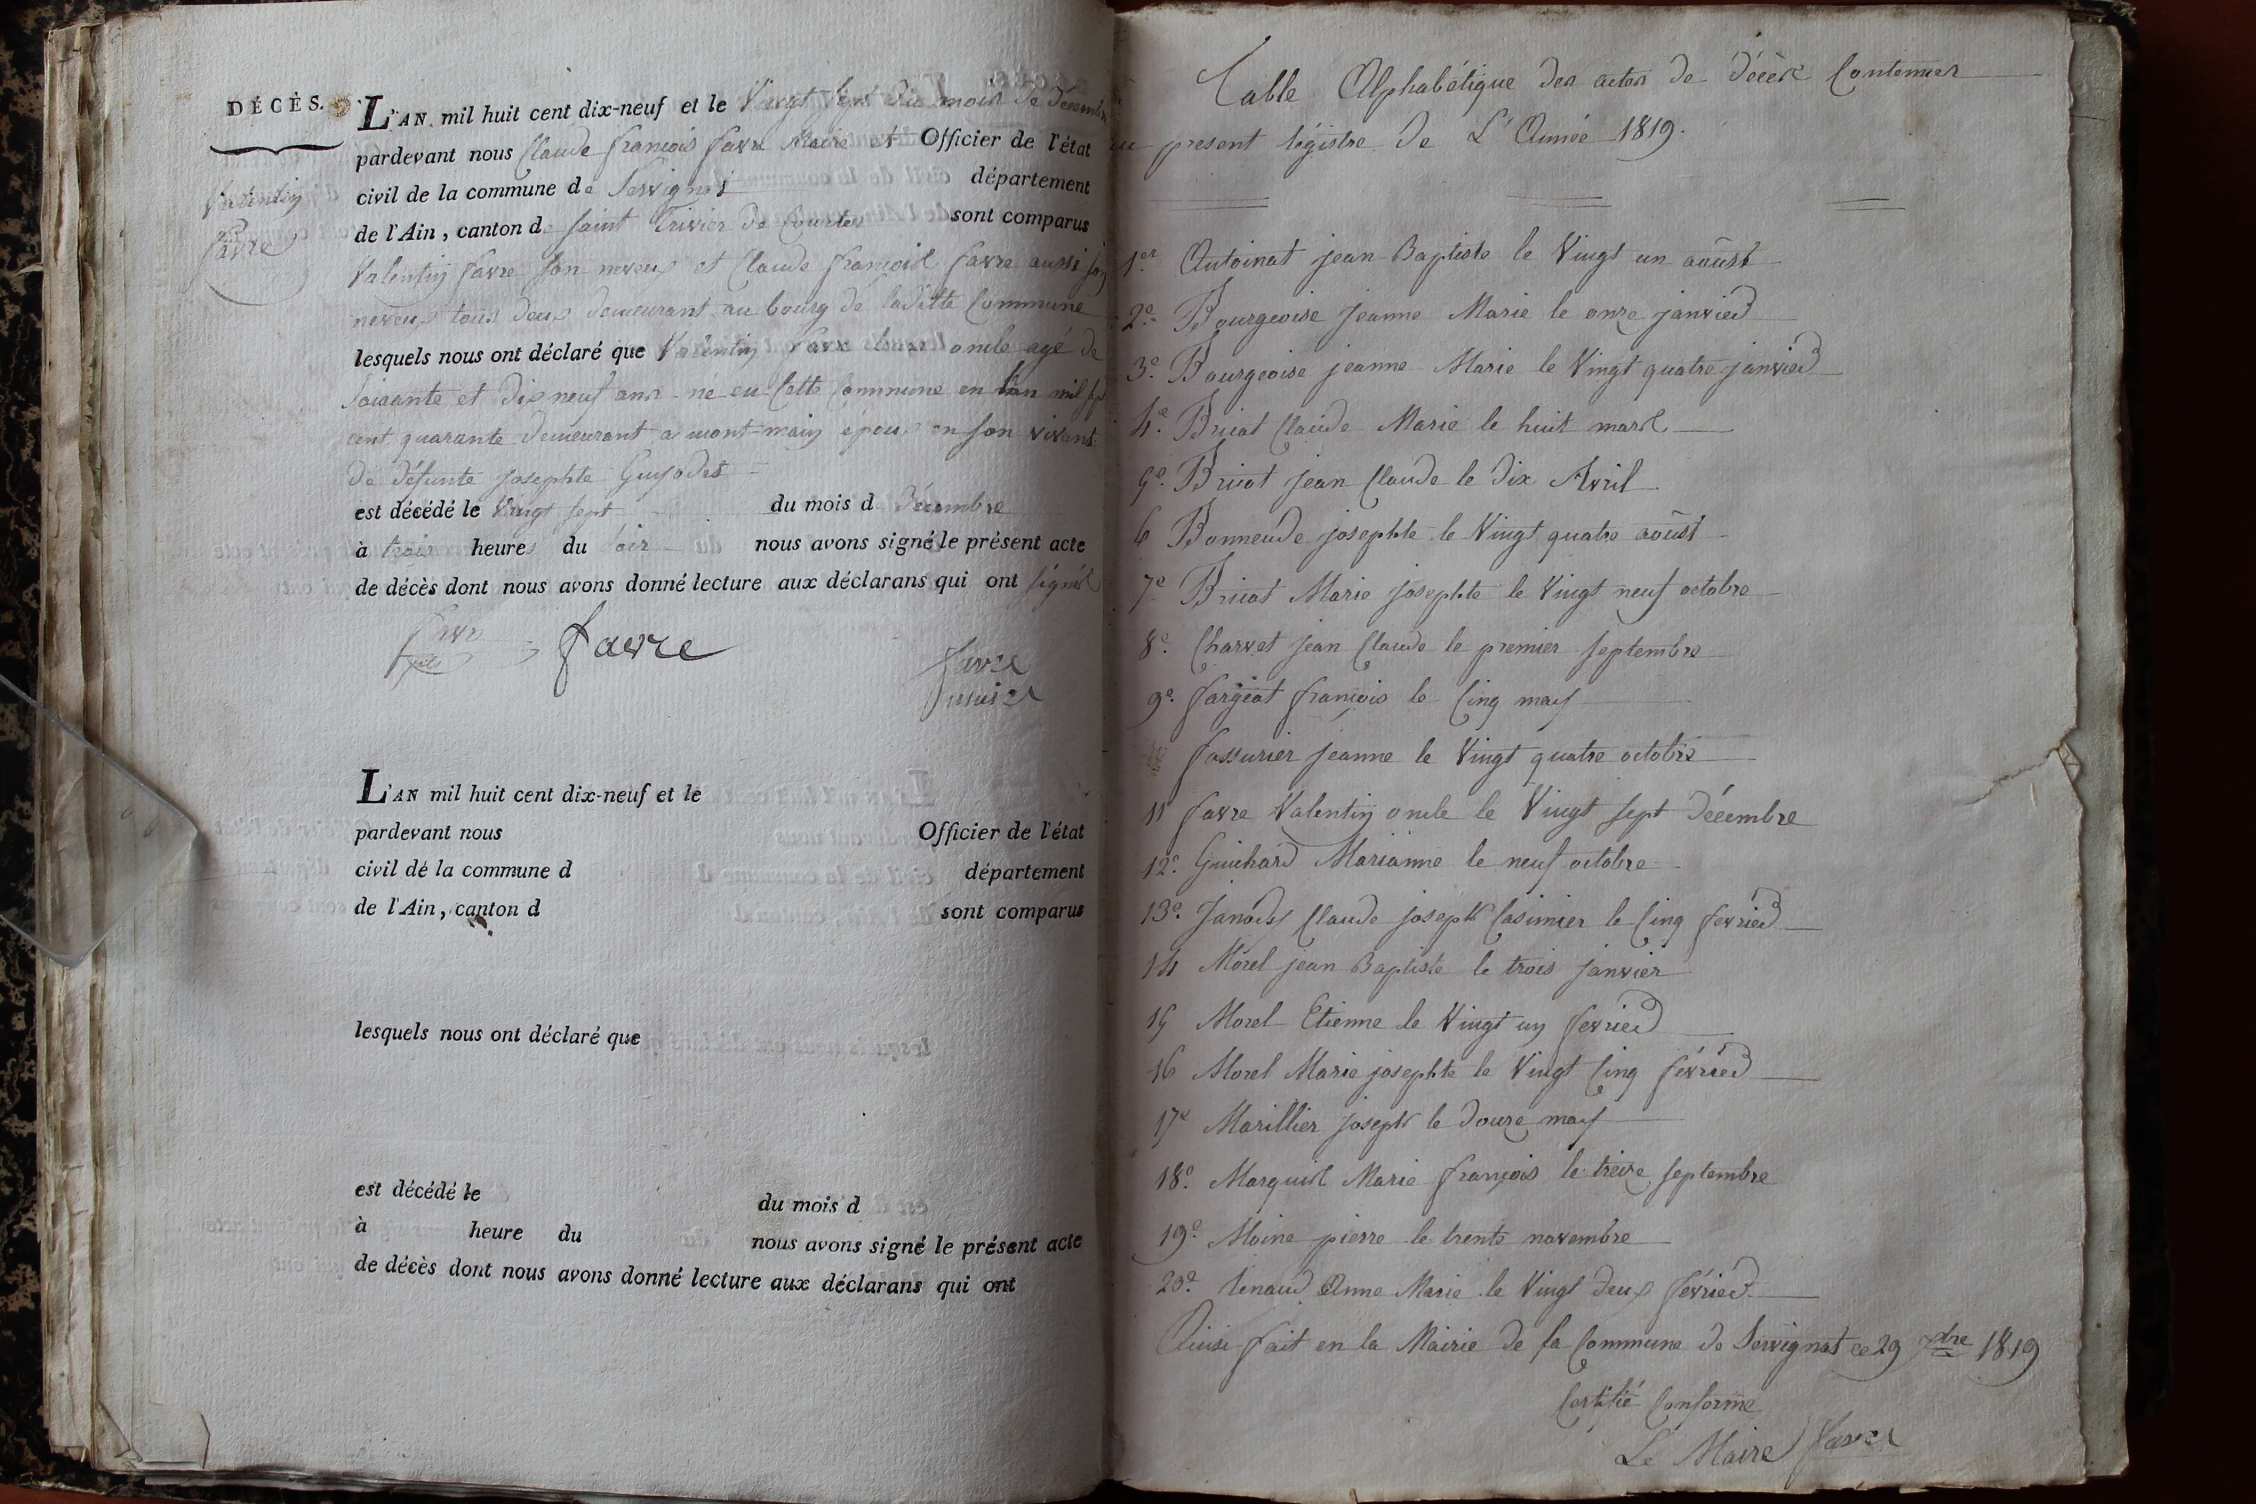 DÉCÈS.
Valentin
favre
L'AN mil huit cent dix-neuf et le Vingt sept du mois de décembre
pardevant nous Claude françois favre Maire et Officier de l'état
civil de la commune de Servignat département
de l'Ain, canton de saint Trivier de Courtes sont comparus
Valentin favre son neveux et Claude françois favre aussi son
neveux tous deux demeurant au bourg de laditte Commune
lesquels nous ont déclaré que Valentin favre leur oncle agé de
soixante et dix neuf ans né en cette Commune en l'an mil sept
cent quarante demeurant a mont-main époux en son vivant
de défunte josephte Guyodet
est décédé le Vingt sept du mois d Décembre
à trois heures du soir nous avons signé le présent acte
de décès dont nous avons donné lecture aux déclarans qui ont signés
favre favre favre
fils maire
L'AN mil huit cent dix-neuf et le
pardevant nous Officier de l'état
civil de la commune d département
de l'Ain, canton d sont comparus
lesquels nous ont déclaré que
est décédé le du mois d
à heure du nous avons signé le présent acte
de décès dont nous avons donné lecture aux déclarans qui ont
Table Alphabétique des actes de décès Contenues
au present régistre de L'Année 1819.
1er Antoinat jean Baptiste le Vingt un aoûst
2e Bourgeoise jeanne Marie le onze janvier
3e Bourgeoise jeanne Marie le Vingt quatre janvier
4e Bricat Claude Marie le huit mars
5e Bricat jean Claude le dix Avril
6 Bonneude josephte le Vingt quatre aoûst
7e Bricat Marie josephte le Vingt neuf octobre
8e Charvet jean Claude le premier septembre
9e fargeat françois le Cinq may
fassurier jeanne le Vingt quatre octobre
11 favre Valentin oncle le Vingt sept Décembre
12e Guichard Marianne le neuf octobre
13e Janodet Claude joseph Casimier le Cinq fevrier
14 Morel jean Baptiste le trois janvier
15 Morel Etienne le Vingt un fevrier
16 Morel Marie josephte le Vingt Cinq février
17e Marillier joseph le douze may
18e Marquis Marie françois le treize septembre
19e Moine pierre le trente novembre
20e renaud Anne Marie le Vingt deux février
Ainsi fait en la Mairie de la Commune de Servignat ce 29 xbre 1819
Certifié Conforme
Le Maire favre